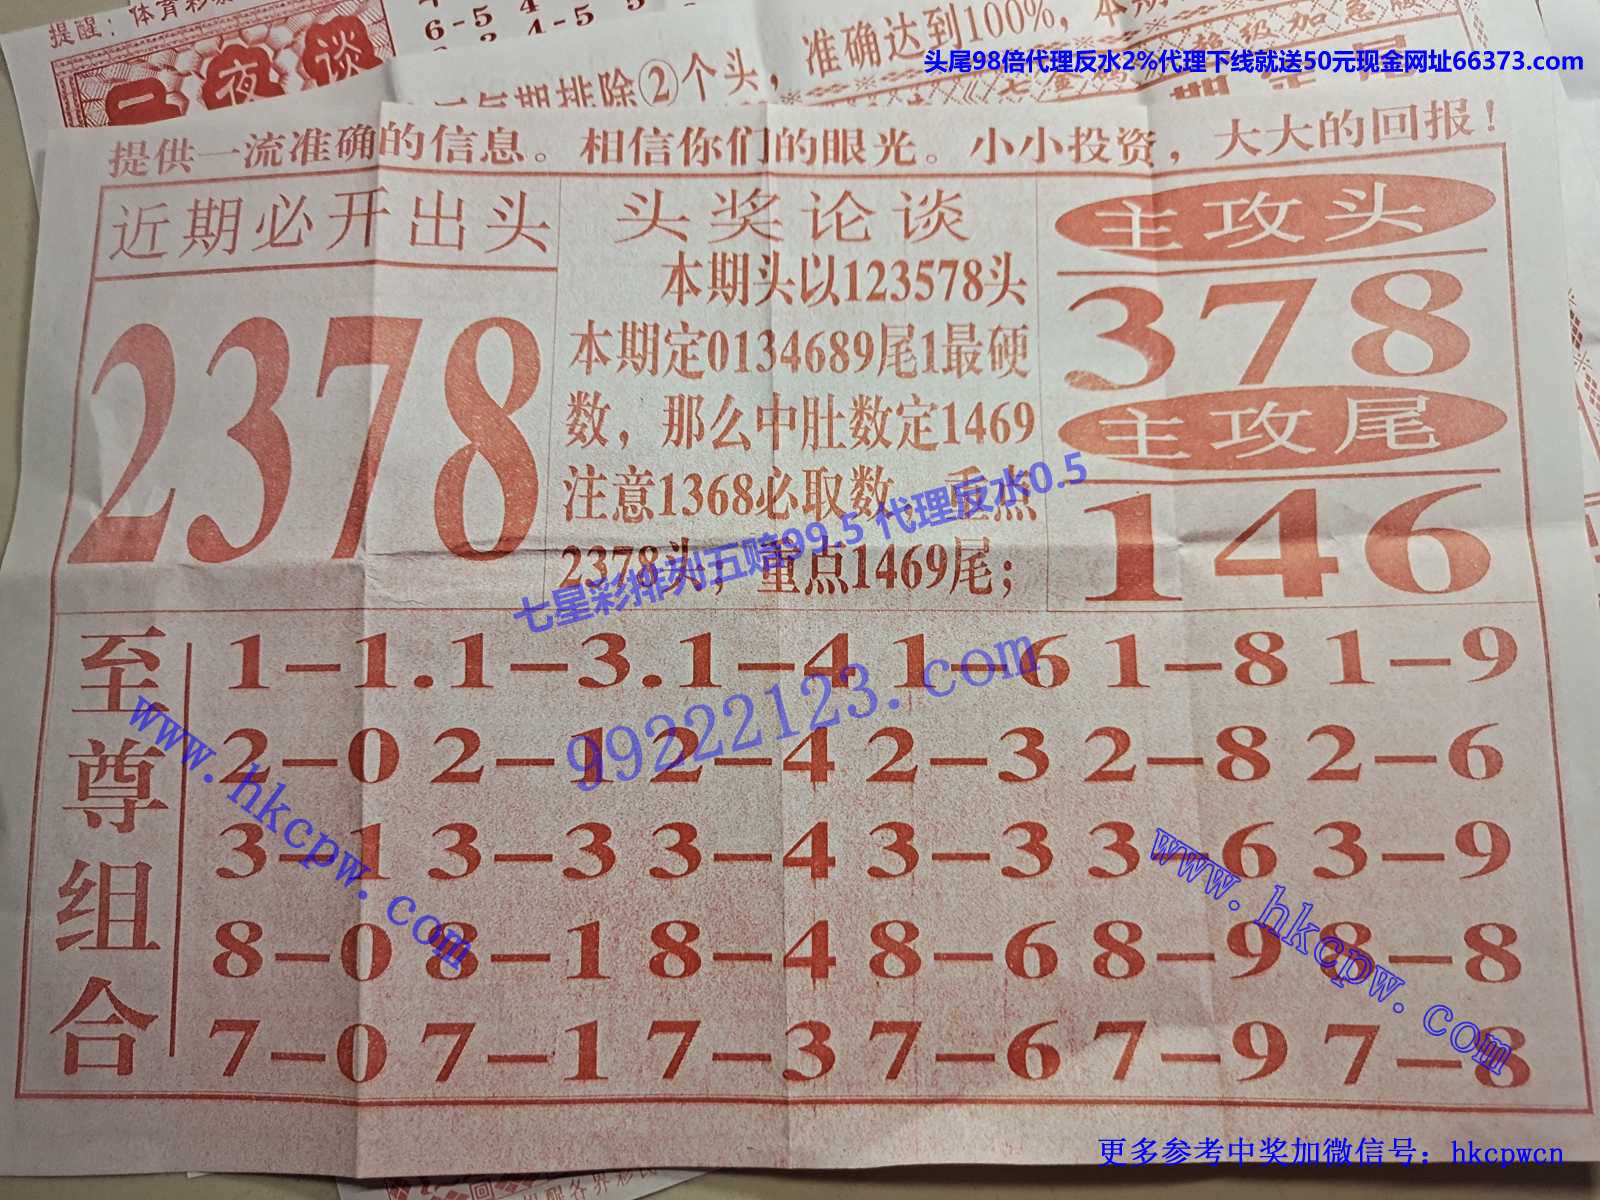 提醒：体育彩
6-5 4
3 4-5 5
夜谈
准确达到100%，本期
每期排除②个头，
超级加急版
头尾98倍代理反水2%代理下线就送50元现金网址66373.com
提供一流准确的信息。相信你们的眼光。小小投资，大大的回报！
近期必开出头
2378
头奖论谈
本期头以123578头
本期定0134689尾1最硬
数，那么中肚数定1469
注意1368必取数，重点
2378头；重点1469尾；
主攻头
378
主攻尾
146
七星彩排列五赔99.5 代理反水0.5
至尊组合
1-1.1-3.1-4 1-6 1-8 1-9
2-0 2-1 2-4 2-3 2-8 2-6
3-1 3-3 3-4 3-3 3-6 3-9
8-0 8-1 8-4 8-6 8-9 8-8
7-0 7-1 7-3 7-6 7-9 7-8
99222123.com
www.hkcpw.com
www.hkcpw.com
更多参考中奖加微信号：hkcpwcn